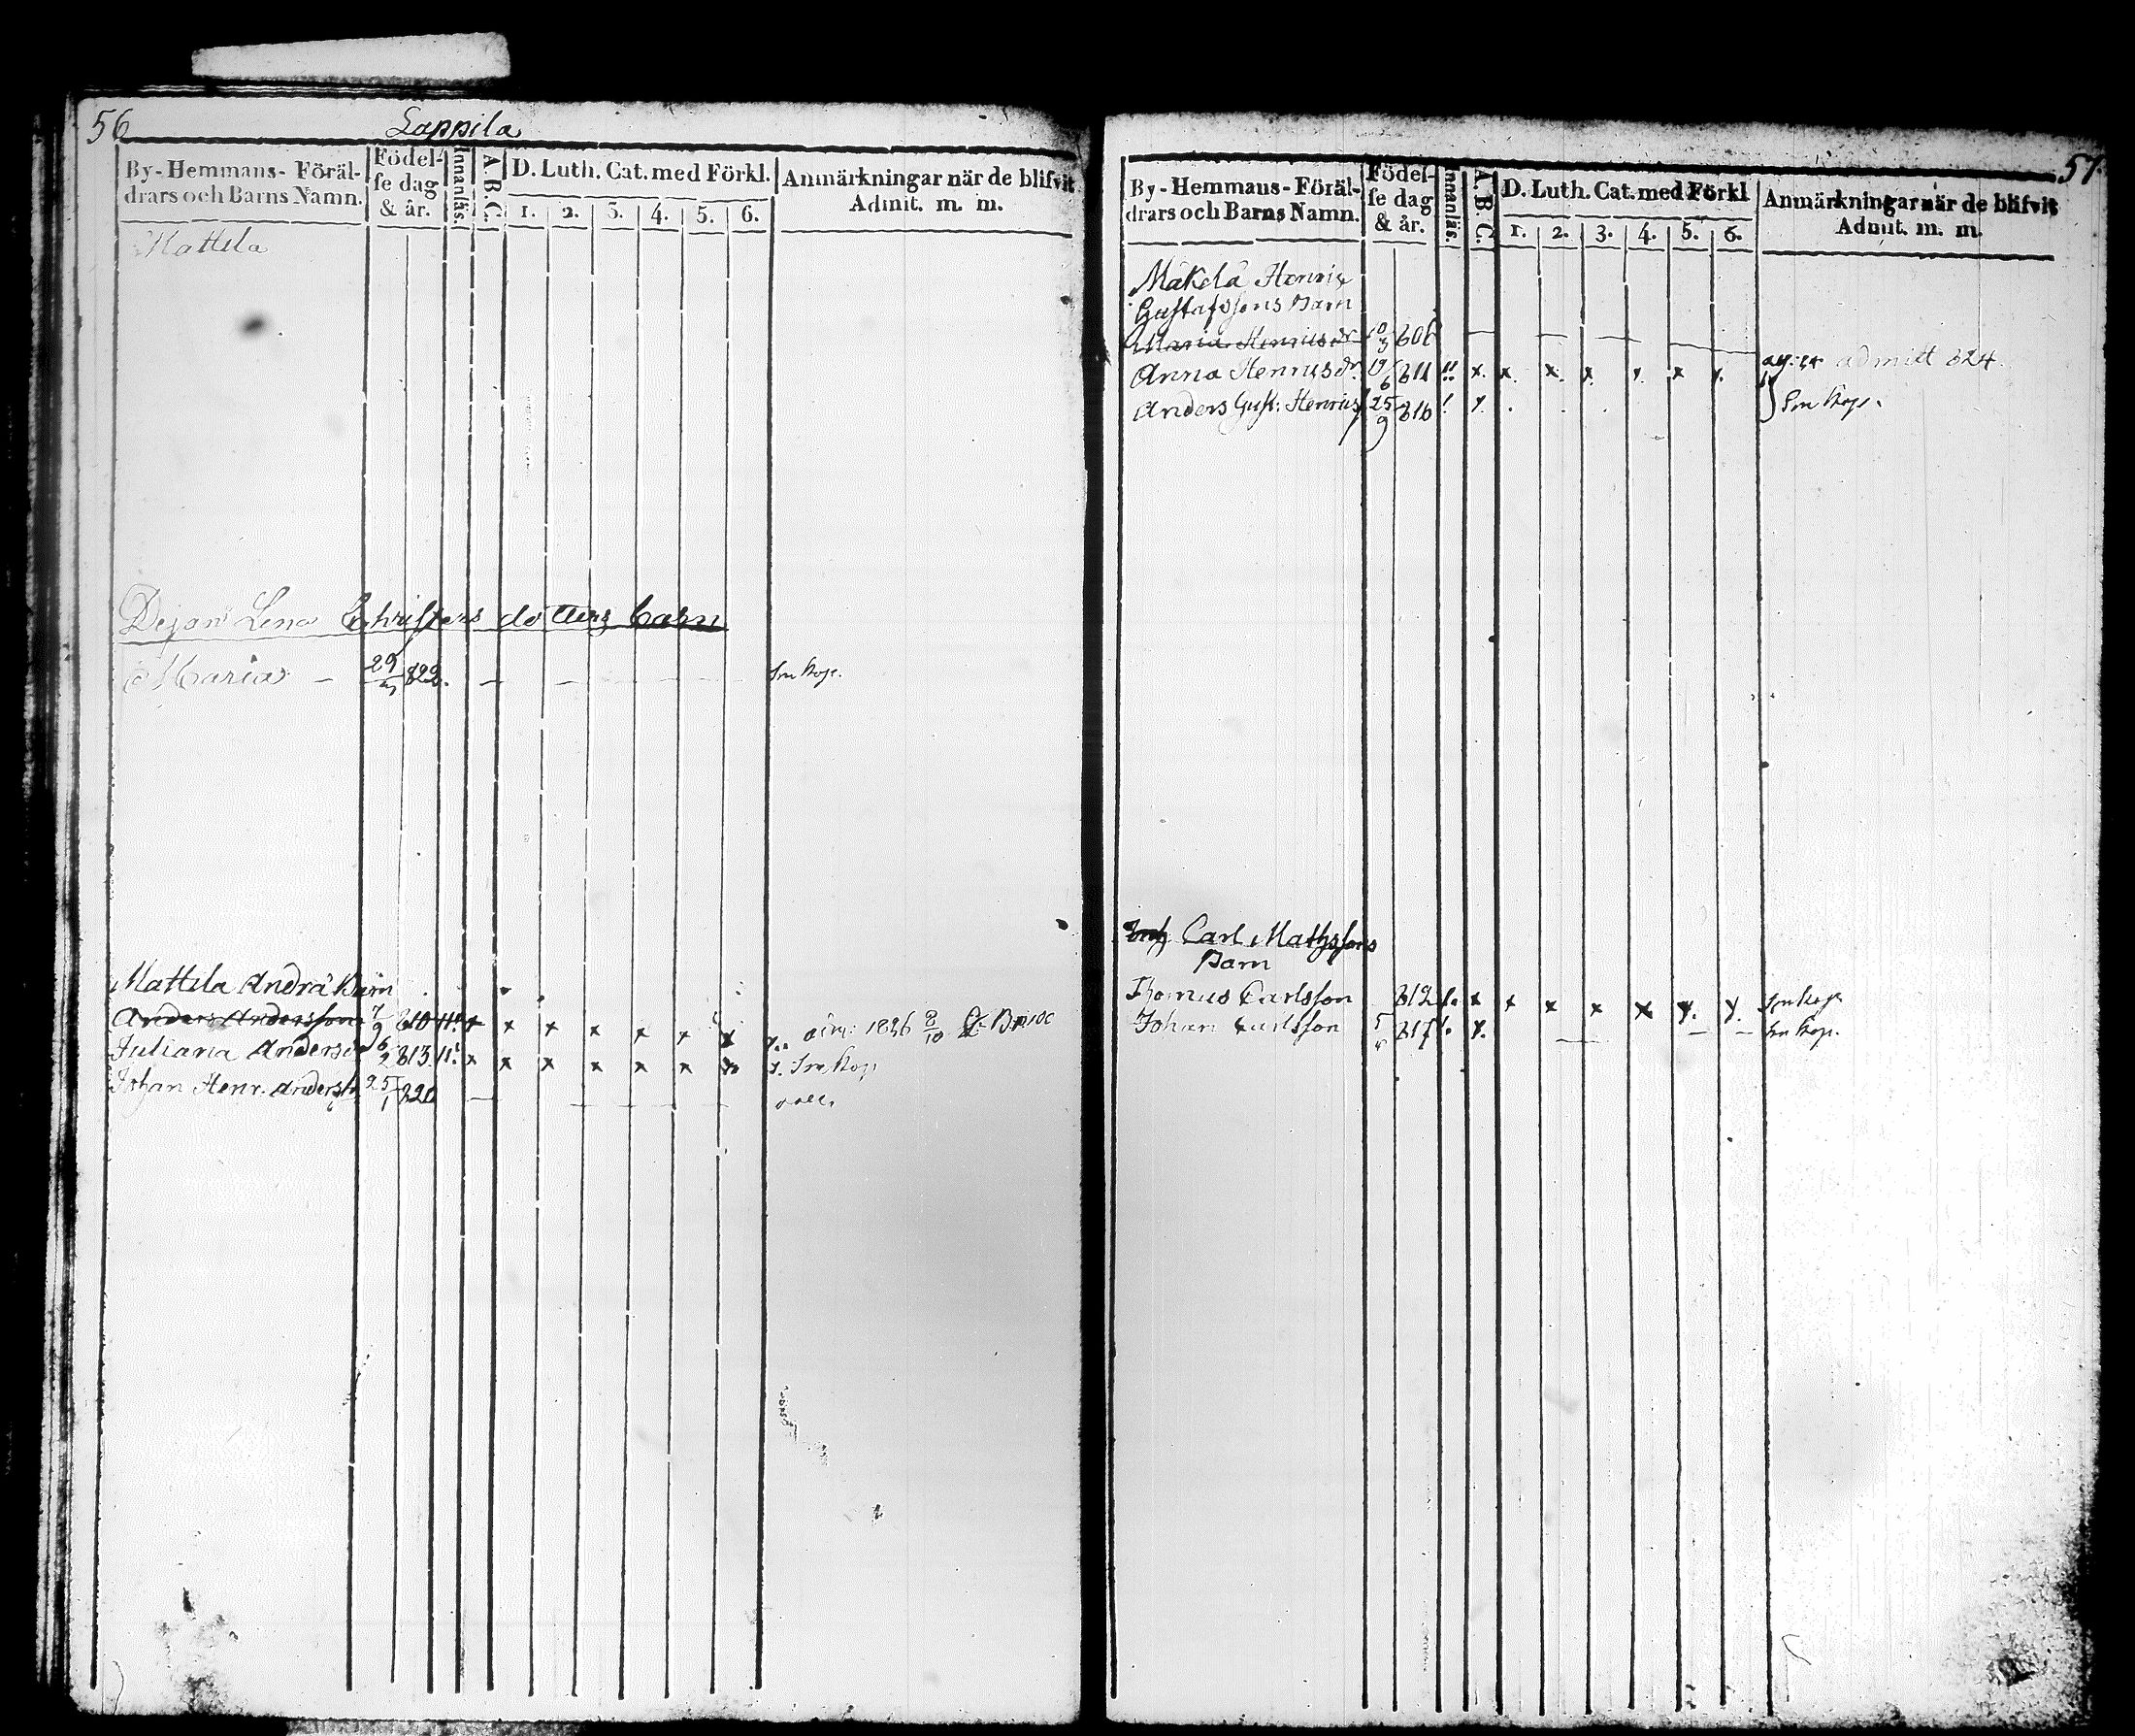 56
Lappila
By-Hemmans-Föräl-
drars och Barns Namn.
Födel-
se dag
& år.
Innanläs.
A. B. C.
D. Luth. Cat. med Förkl.
1. 2. 3. 4. 5. 6.
Anmärkningar när de blifvit
Admit. m. m.
Mattila
Lena Christers dotters barn
Maria — 29 823. — — —
Mattila Andra Barn
Anders Andersson 7/9 810 x x x x x x x 1826 8/10
Juliana Andersdr 6/2 813 x x x x x x
Johan Henr. Anderss 25/1 820 — — —
57.
By-Hemmans-Föräl-
drars och Barns Namn.
Födel-
se dag
& år.
Innanläs.
A. B. C.
D. Luth. Cat. med Förkl
1. 2. 3. 4. 5. 6.
Anmärkningar när de blifvit
Admit. m. m.
Mäkelä Henric
Gustafssons Barn
Maria Henricsdr 10/3 806 — — — —
Anna Henricsdr. 19/6 811 x. x. x. x. x. x x. admitt 824.
Anders Gust: Henricss 25/9 816
Carl Mathssons
Barn
Thomas Carlsson 812 x x x x x x. x.
Johan Carlsson 5 817 x. — — —